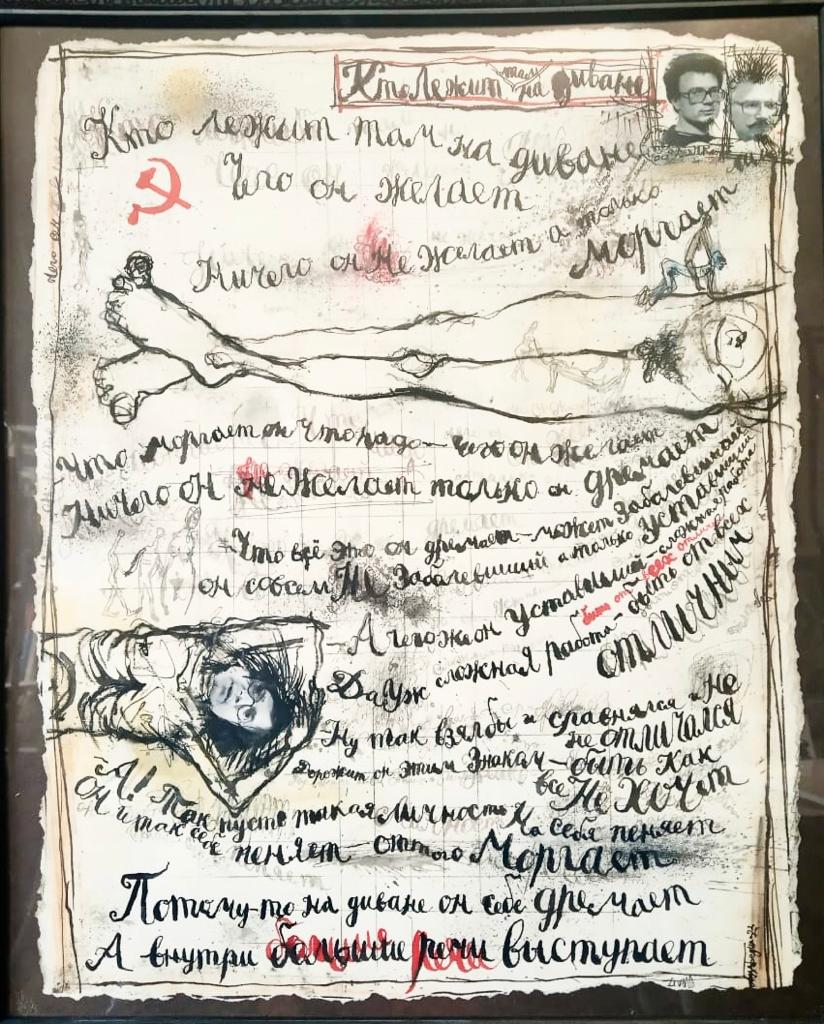 Кто лежит там на диване
Кто лежит там на диване
Чего он желает
Ничего он не желает а только
моргает
Что моргает он что надо – чего он желает
Ничего он не желает только он дремает
– Что всё это он дремает – может заболевший
он совсем не заболевший а только уставший
– А чегож он уставший – сложная работа
быть от всех отличн
Да уж сложная работа – быть от всех
отличным
Ну так взялбы и сравнялся и не
не отличался
Дорожит он этим знакам – быть как
все не хочет
– А! Так пусть такая личность на себя пеняет
Он и так себе пеняет – оттого моргает
Потому-то на диване он себе дремает
А внутри большие речи выступает